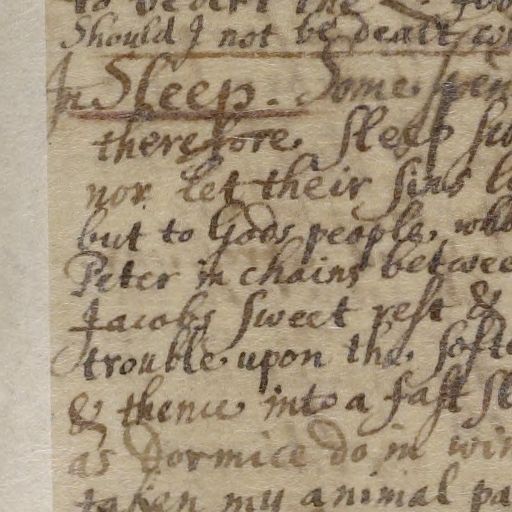 Should I not be dealt
In Sleep. Some
therefore sleep
nor let their sins
but to Gods people, who
Peter in chains betwee
Jacobs sweet rest &
trouble upon the softe
& thence into a fast sl
as Dormice do in win
taken my animal pa